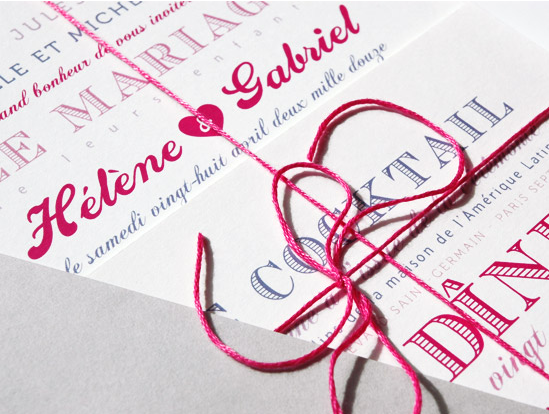 JULES
LE ET MICHE
and bonheur de vous invite
LE MARIAG
e leurs enfant
Hélène & Gabriel
le samedi vingt-huit avril deux mille douze
COCKTAIL
la maison de l'Amérique Latin
SAINT GERMAIN - PARIS SEP
DÎN
vingt